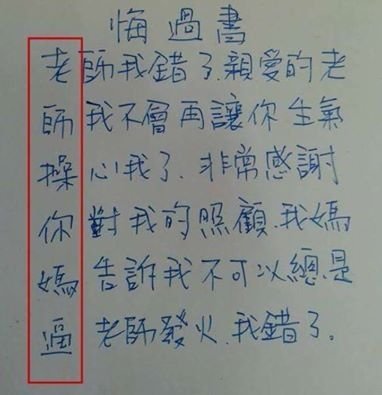 悔過書
老師我錯了.親愛的老
師我不會再讓你生氣
操心我了.非常感謝
你對我的照顧.我媽
媽告訴我不可以總是
逼老師發火.我錯了.